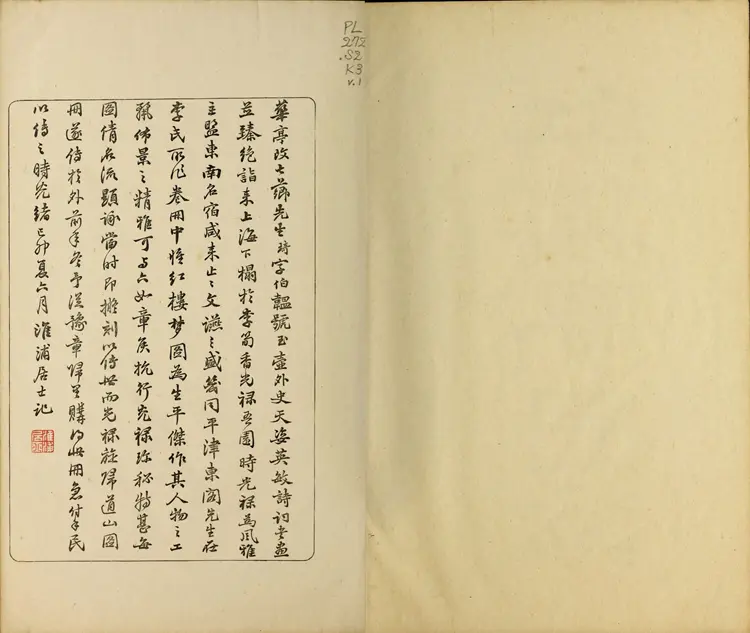 PL
272
.S2
K3
v.1
華亭改七薌先生琦字伯韞號玉壺外史天姿英敏詩詞書畫
並臻絕詣來上海下榻於李筍香光祿吾園時光祿為風雅
主盟東南名宿咸來止止文讌之盛幾同平津東閣先生在
李氏所作卷冊中惟紅樓夢圖為生平傑作其人物之工
麗佈景之精雅可與六如章矦抗行光祿珍秘特甚每
圖倩名流題詠當時即擬刻以傳世而光祿旋歸道山圖
冊遂傳於外前年冬予從豫章歸里購得此冊急付手民
以傳之時光緒己卯夏六月淮浦居士記